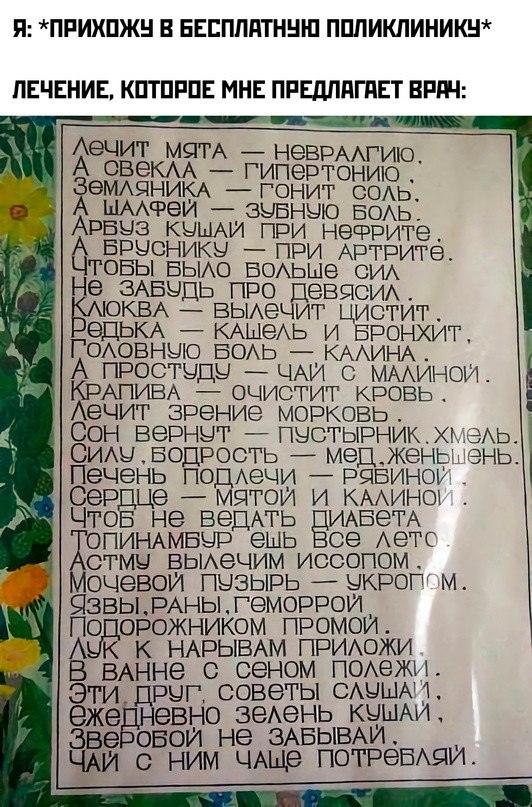 Я: *ПРИХОЖУ В БЕСПЛАТНУЮ ПОЛИКЛИНИКУ*
ЛЕЧЕНИЕ, КОТОРОЕ МНЕ ПРЕДЛАГАЕТ ВРАЧ:
ЛЕЧИТ МЯТА — НЕВРАЛГИЮ,
А СВЕКЛА — ГИПЕРТОНИЮ,
ЗЕМЛЯНИКА — ГОНИТ СОЛЬ,
А ШАЛФЕЙ — ЗУБНУЮ БОЛЬ.
АРБУЗ КУШАЙ ПРИ НЕФРИТЕ,
А БРУСНИКУ — ПРИ АРТРИТЕ.
ЧТОБЫ БЫЛО БОЛЬШЕ СИЛ
НЕ ЗАБУДЬ ПРО ДЕВЯСИЛ.
КЛЮКВА — ВЫЛЕЧИТ ЦИСТИТ,
РЕДЬКА — КАШЕЛЬ И БРОНХИТ,
ГОЛОВНУЮ БОЛЬ — КАЛИНА.
А ПРОСТУДУ — ЧАЙ С МАЛИНОЙ.
КРАПИВА — ОЧИСТИТ КРОВЬ,
ЛЕЧИТ ЗРЕНИЕ МОРКОВЬ.
СОН ВЕРНУТ — ПУСТЫРНИК, ХМЕЛЬ.
СИЛУ, БОДРОСТЬ — МЕД, ЖЕНЬШЕНЬ.
ПЕЧЕНЬ ПОДЛЕЧИ — РЯБИНОЙ,
СЕРДЦЕ — МЯТОЙ И КАЛИНОЙ.
ЧТОБ НЕ ВЕДАТЬ ДИАБЕТА
ТОПИНАМБУР ЕШЬ ВСЕ ЛЕТО.
АСТМУ ВЫЛЕЧИМ ИССОПОМ,
МОЧЕВОЙ ПУЗЫРЬ — УКРОПОМ.
ЯЗВЫ, РАНЫ, ГЕМОРРОЙ
ПОДОРОЖНИКОМ ПРОМОЙ.
ЛУК К НАРЫВАМ ПРИЛОЖИ,
В ВАННЕ С СЕНОМ ПОЛЕЖИ.
ЭТИ ДРУГ, СОВЕТЫ СЛУШАЙ,
ЕЖЕДНЕВНО ЗЕЛЕНЬ КУШАЙ,
ЗВЕРОБОЙ НЕ ЗАБЫВАЙ,
ЧАЙ С НИМ ЧАЩЕ ПОТРЕБЛЯЙ.